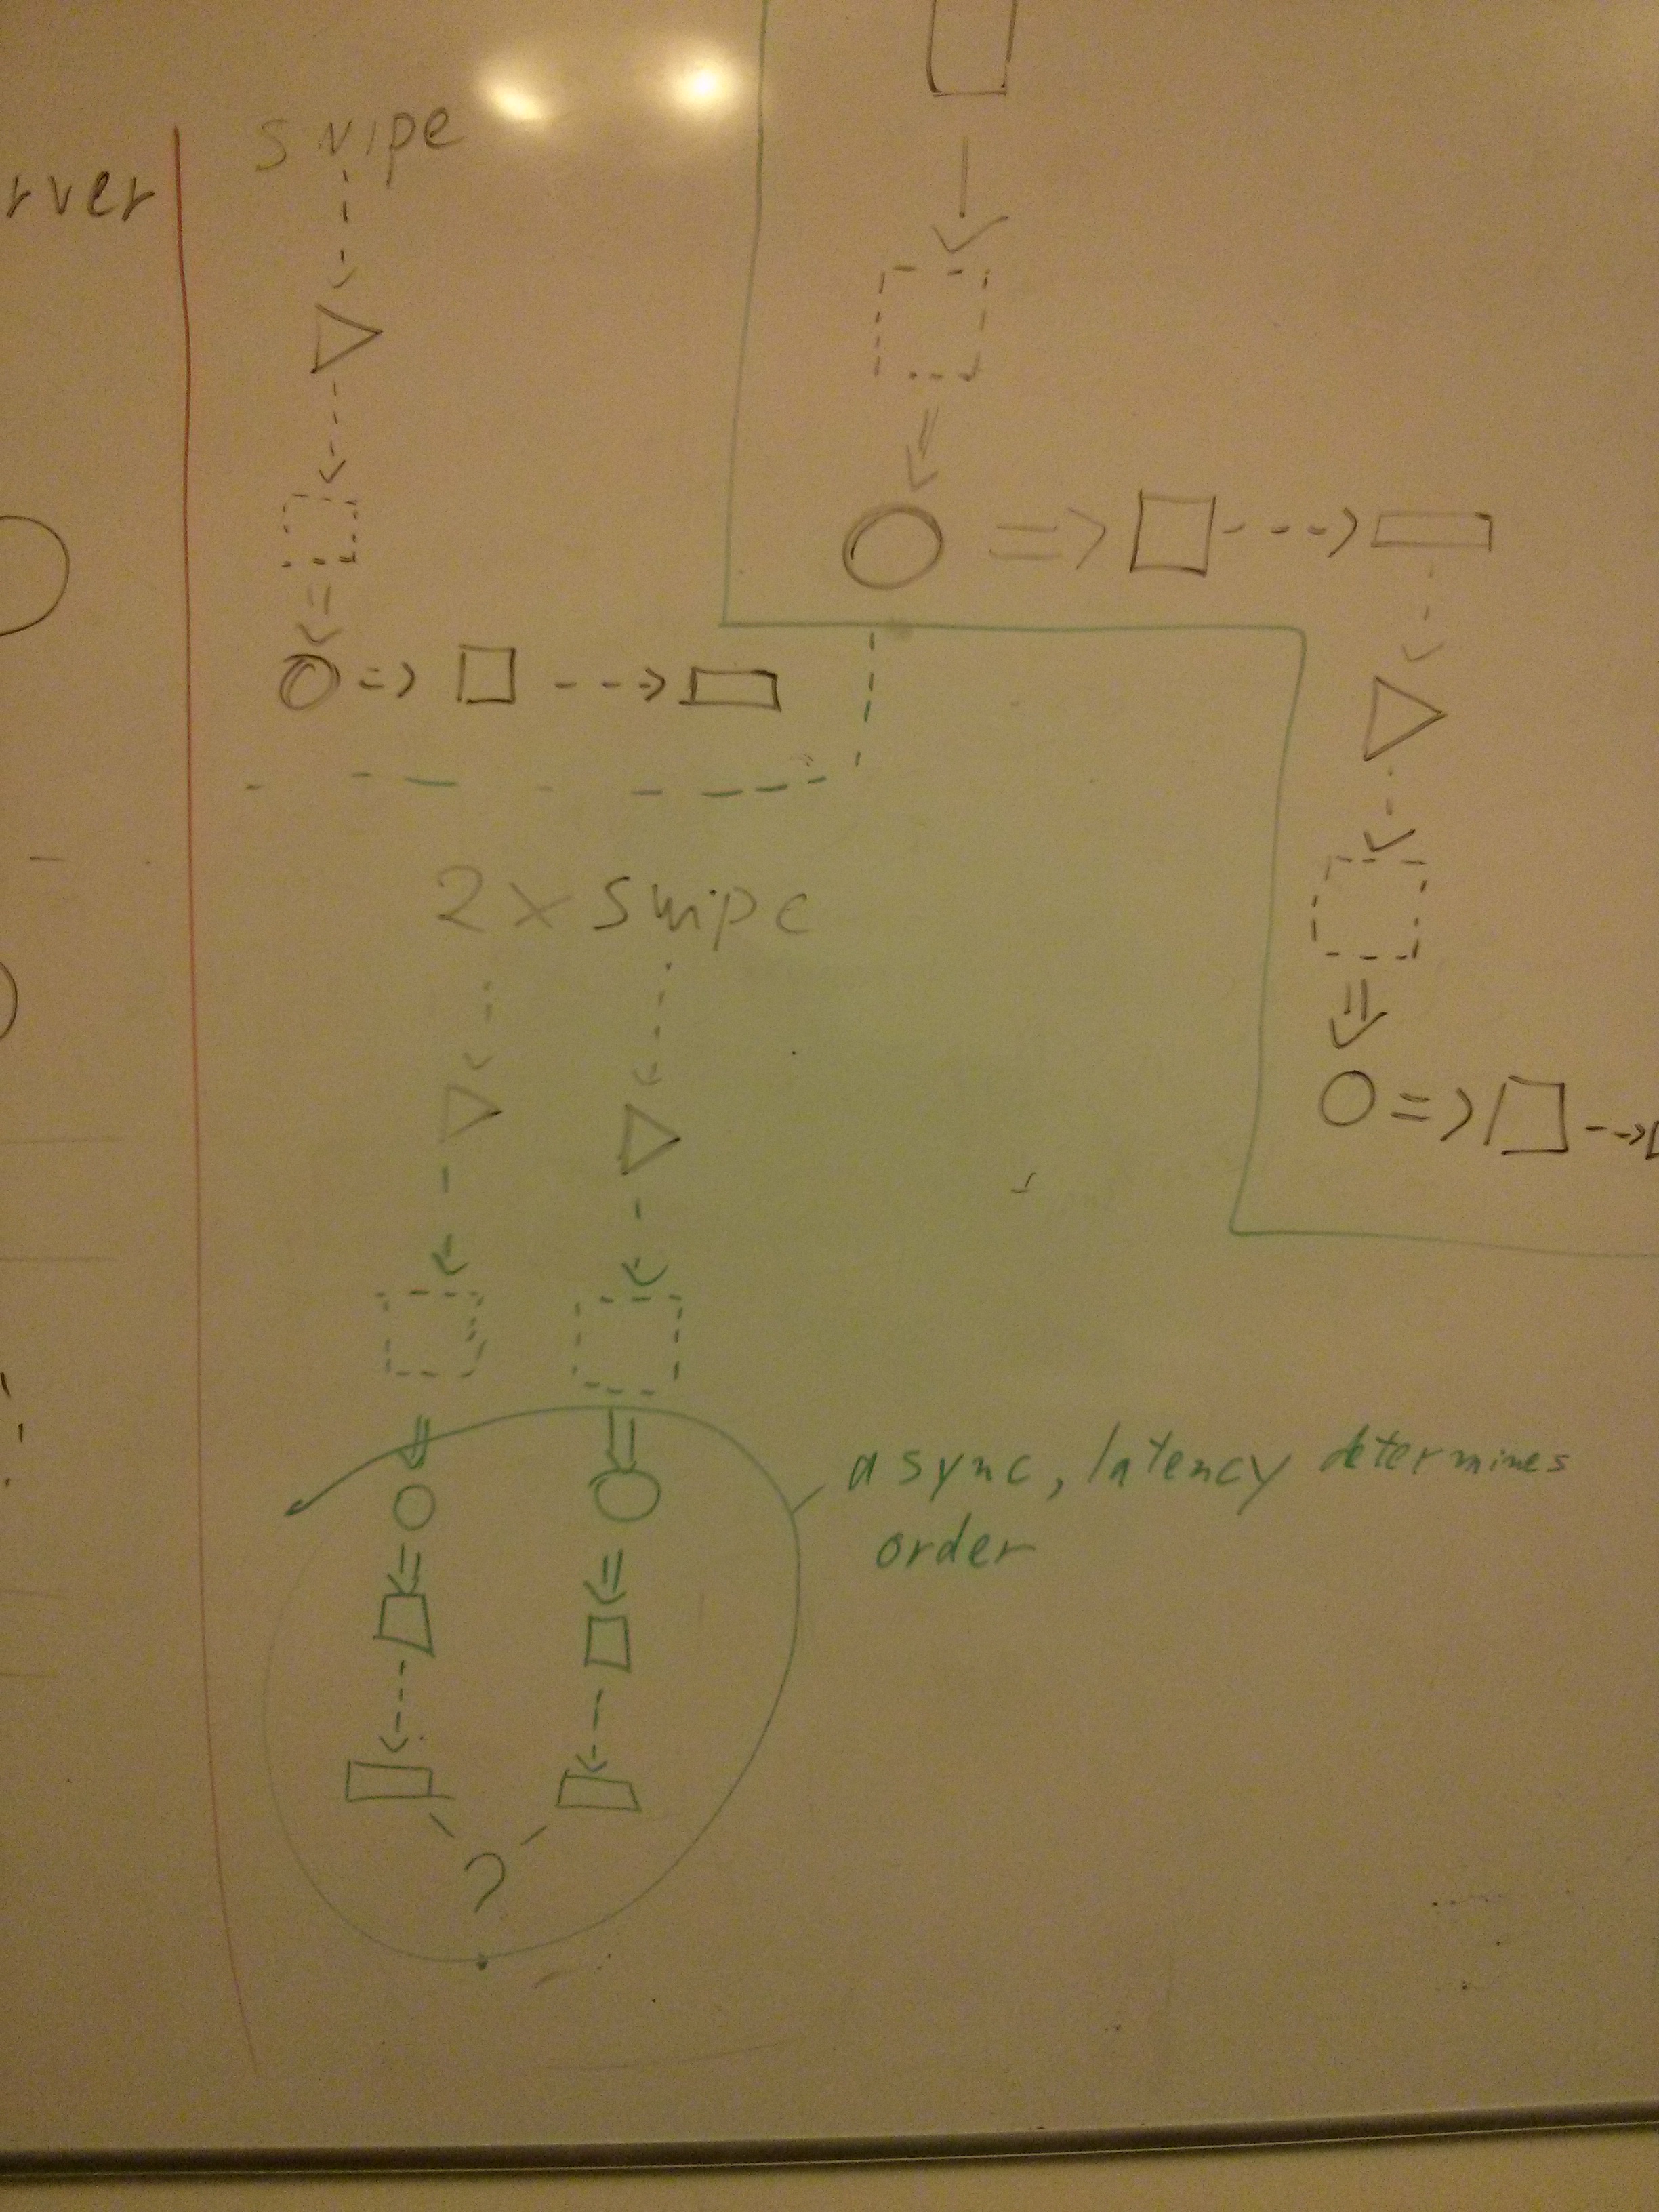 swipe
rver
2 x swipe
async, latency determines
order
?